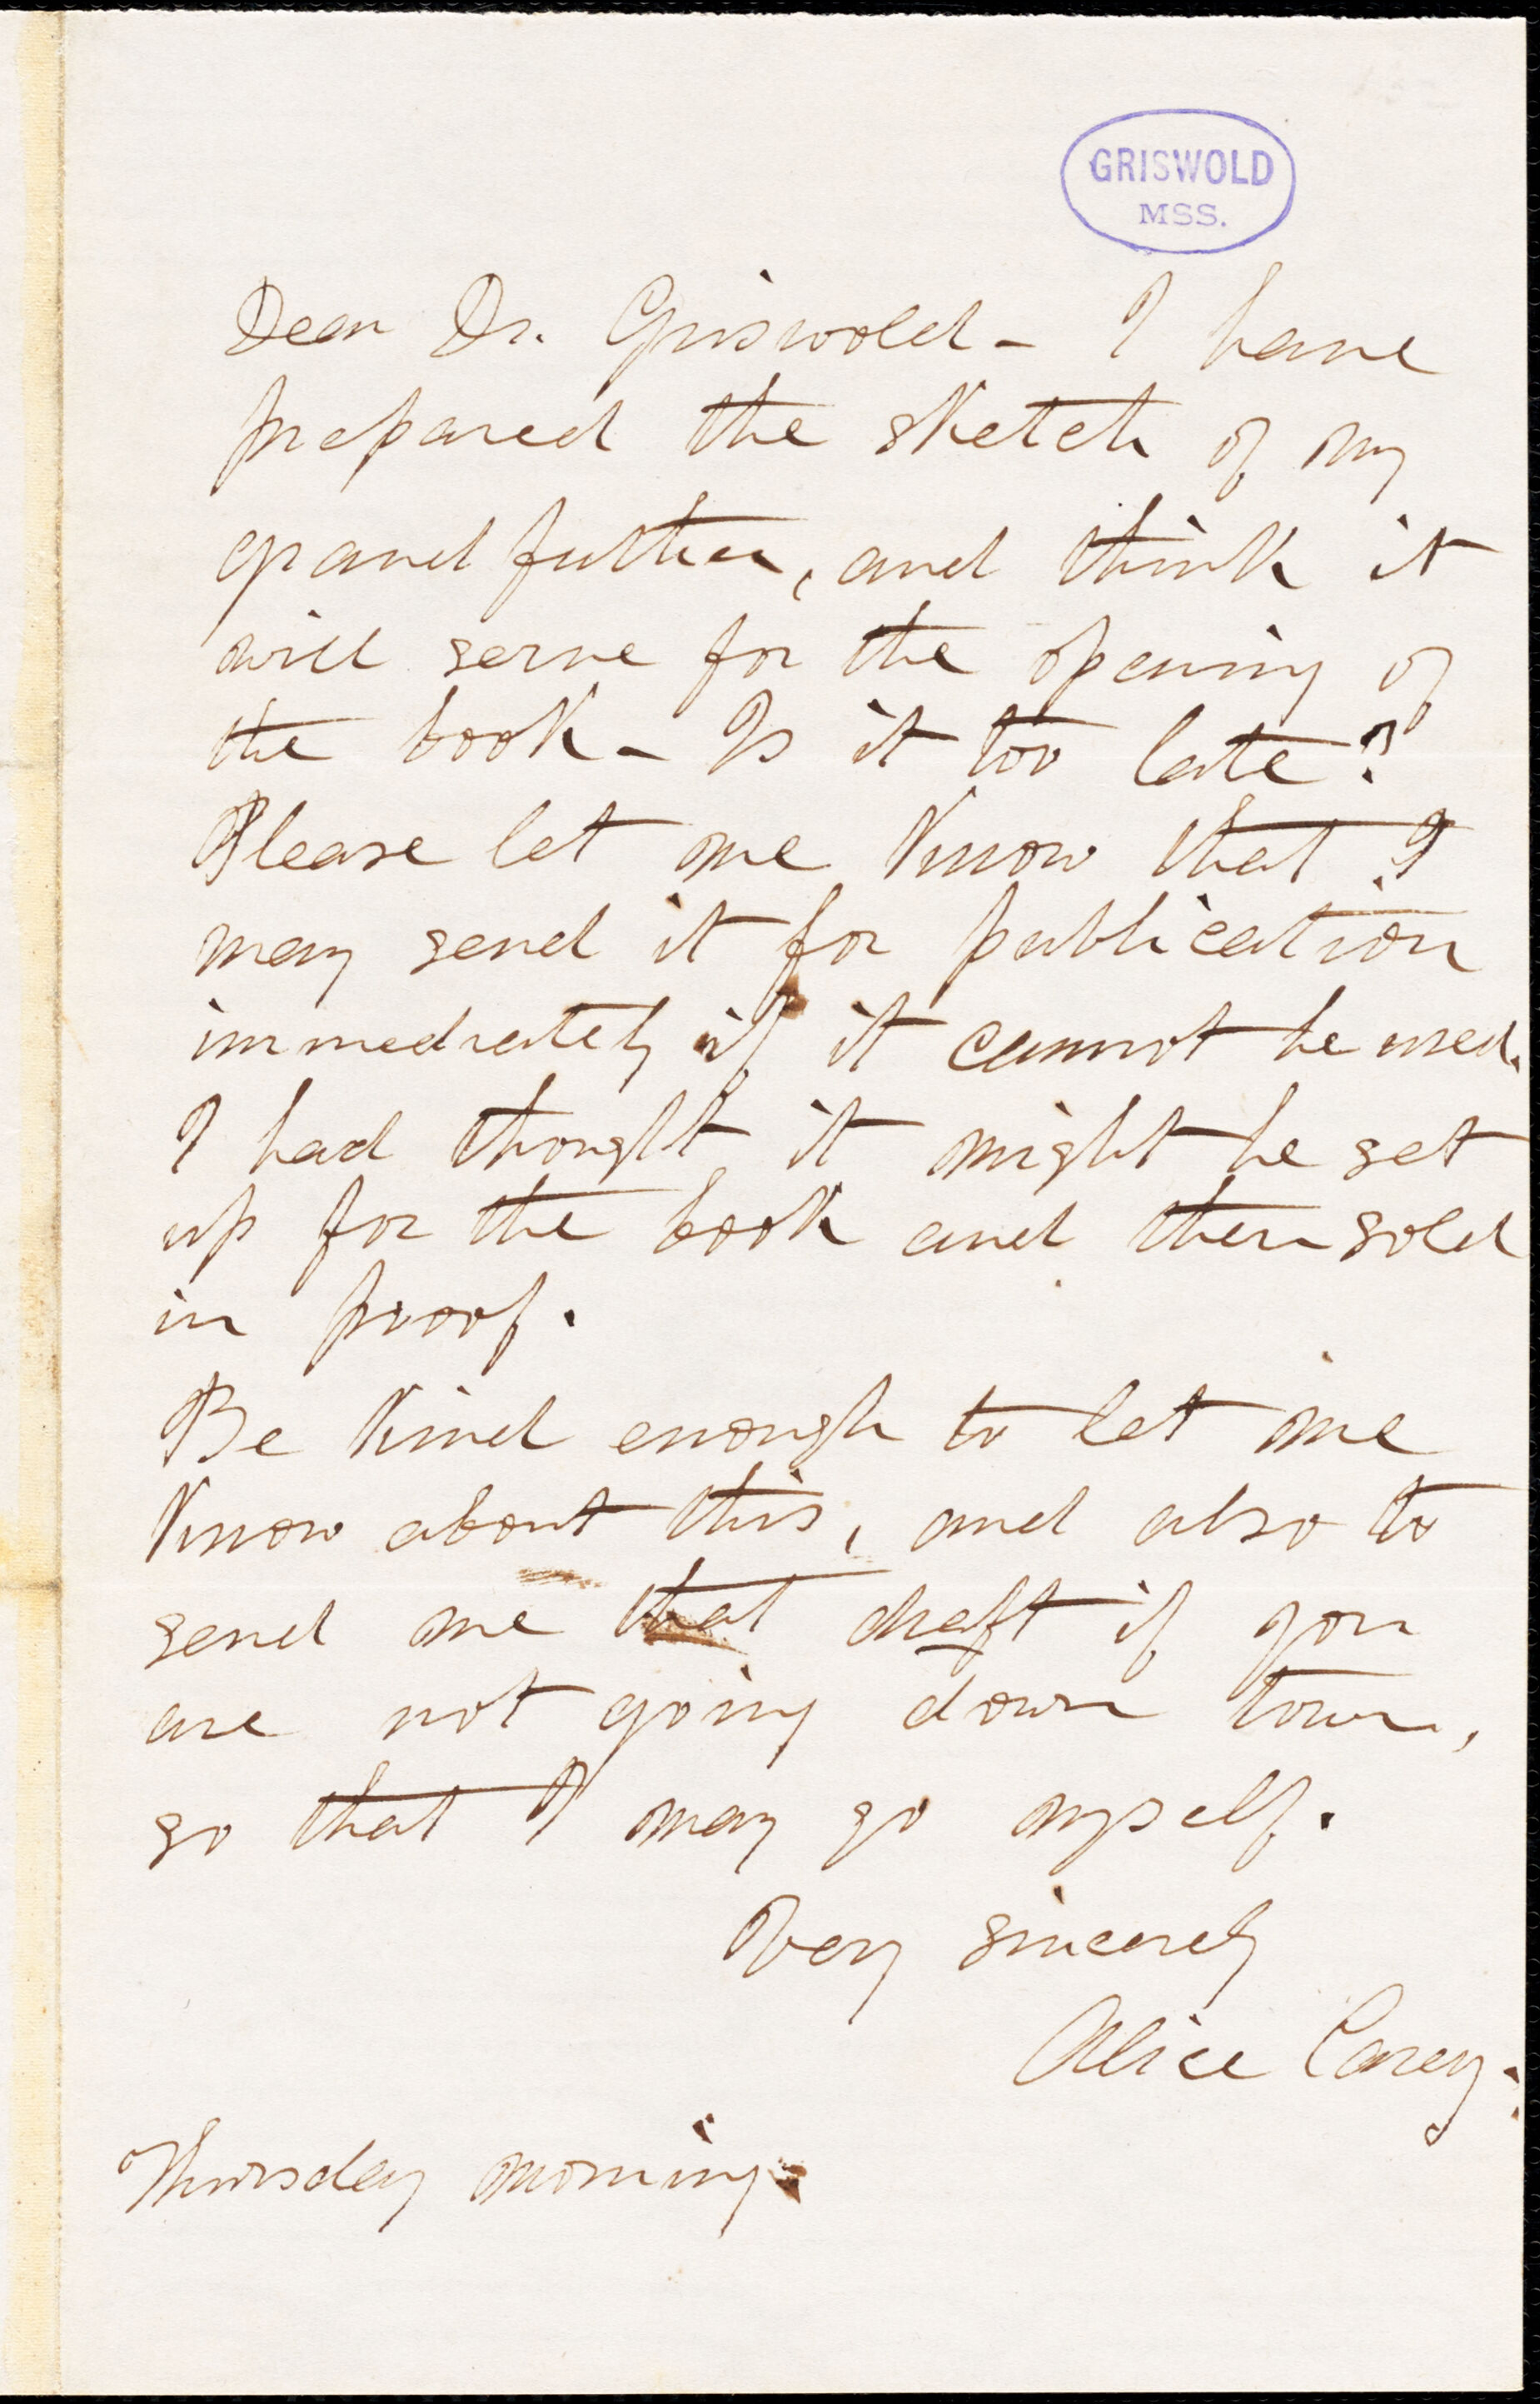 GRISWOLD
MSS.
Dear Dr. Griswold - I have
prepared the sketch of my
grandfather, and think it
will serve for the opening of
the book - Is it too late?
Please let me know that I
may send it for publication
immediately if it cannot be used.
I had thought it might be set
up for the book and then sold
in proof.
Be kind enough to let me
know about this, and also to
send me that draft if you
are not going down town,
so that I may go myself.
Very sincerely
Alice Carey.
Thursday morning.